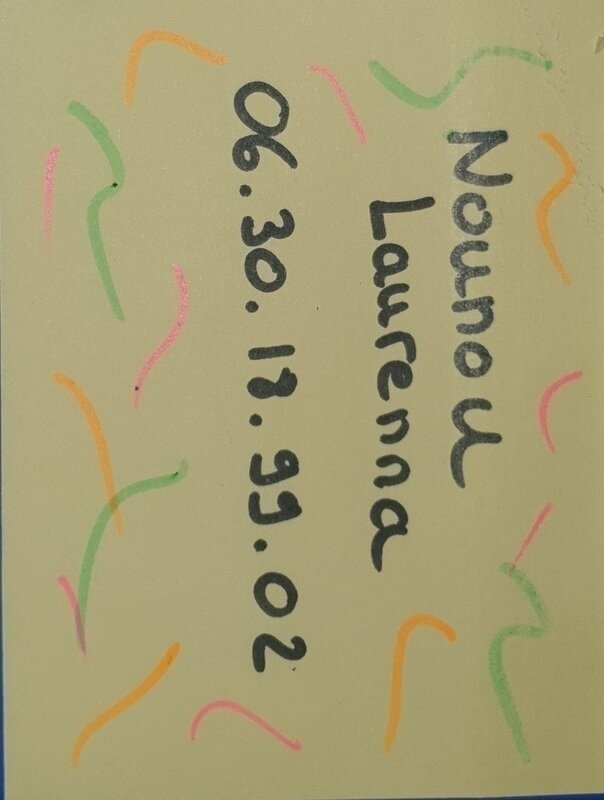 Nounou
Laurenna
06.30.18.99.02